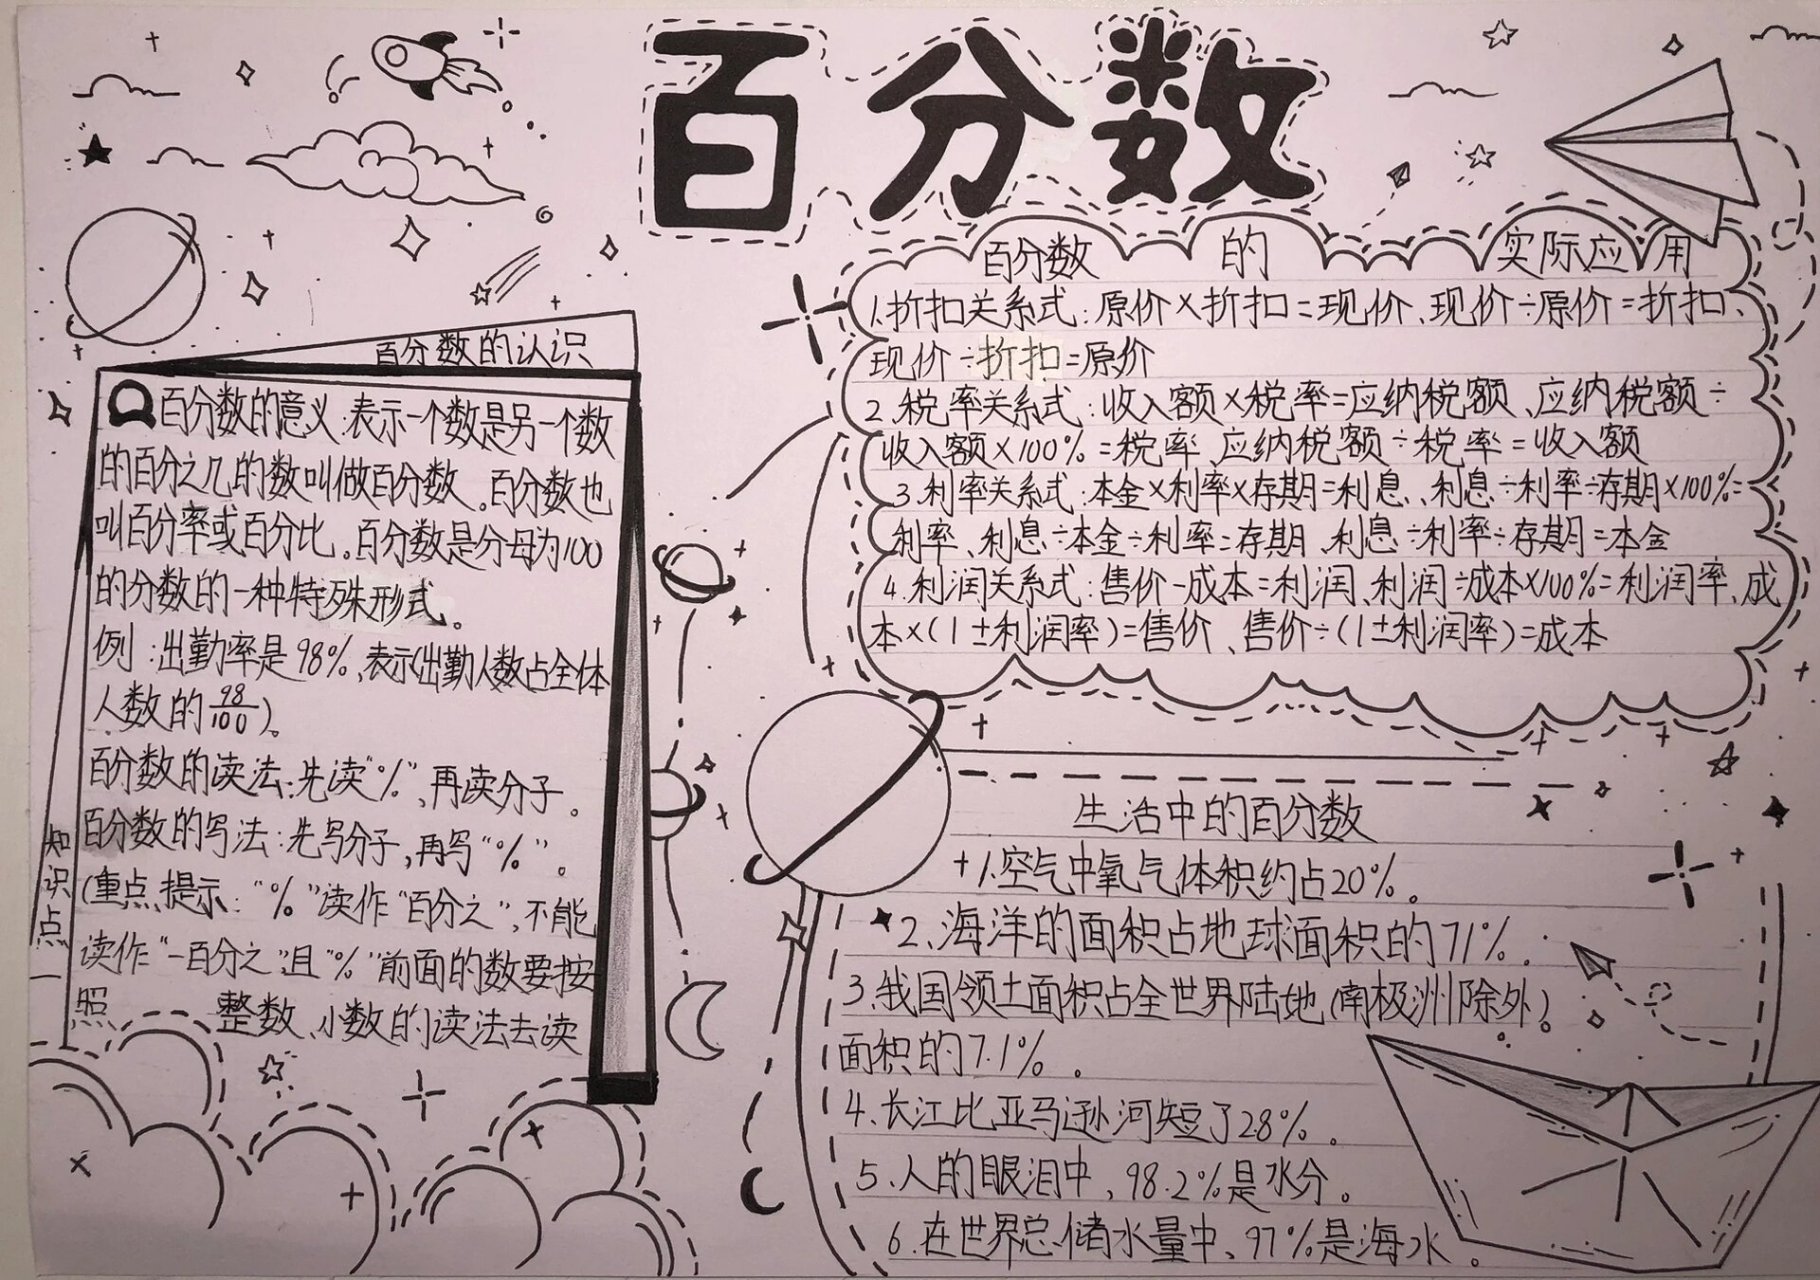 百分数
百分数的认识
百分数的意义:表示一个数是另一个数
的百分之几的数叫做百分数。百分数也
叫百分率或百分比。百分数是分母为100
的分数的一种特殊形式。
例:出勤率是98%,表示(出勤人数占全体
人数的98/100)。
百分数的读法:先读“%”,再读分子。
百分数的写法:先写分子,再写“%”。
(重点提示:“%”读作“百分之”,不能
读作“一百分之”且“%”前面的数要按
照 整数、小数的读法去读
知识点一
百分数的实际应用
1.折扣关系式:原价×折扣=现价、现价÷原价=折扣、
现价÷折扣=原价
2.税率关系式:收入额×税率=应纳税额、应纳税额÷
收入额×100%=税率、应纳税额÷税率=收入额
3.利率关系式:本金×利率×存期=利息、利息÷利率÷存期×100%=
利率、利息÷本金÷利率=存期、利息÷利率÷存期=本金
4.利润关系式:售价-成本=利润、利润÷成本×100%=利润率、成
本×(1±利润率)=售价、售价÷(1±利润率)=成本
生活中的百分数
1.空气中氧气体积约占20%。
2、海洋的面积占地球面积的71%.
3.我国领土面积占全世界陆地(南极洲除外)。
面积的7.1%。
4.长江比亚马逊河短了28%。
5.人的眼泪中,98.2%是水分。
6.在世界总储水量中、97%是海水。